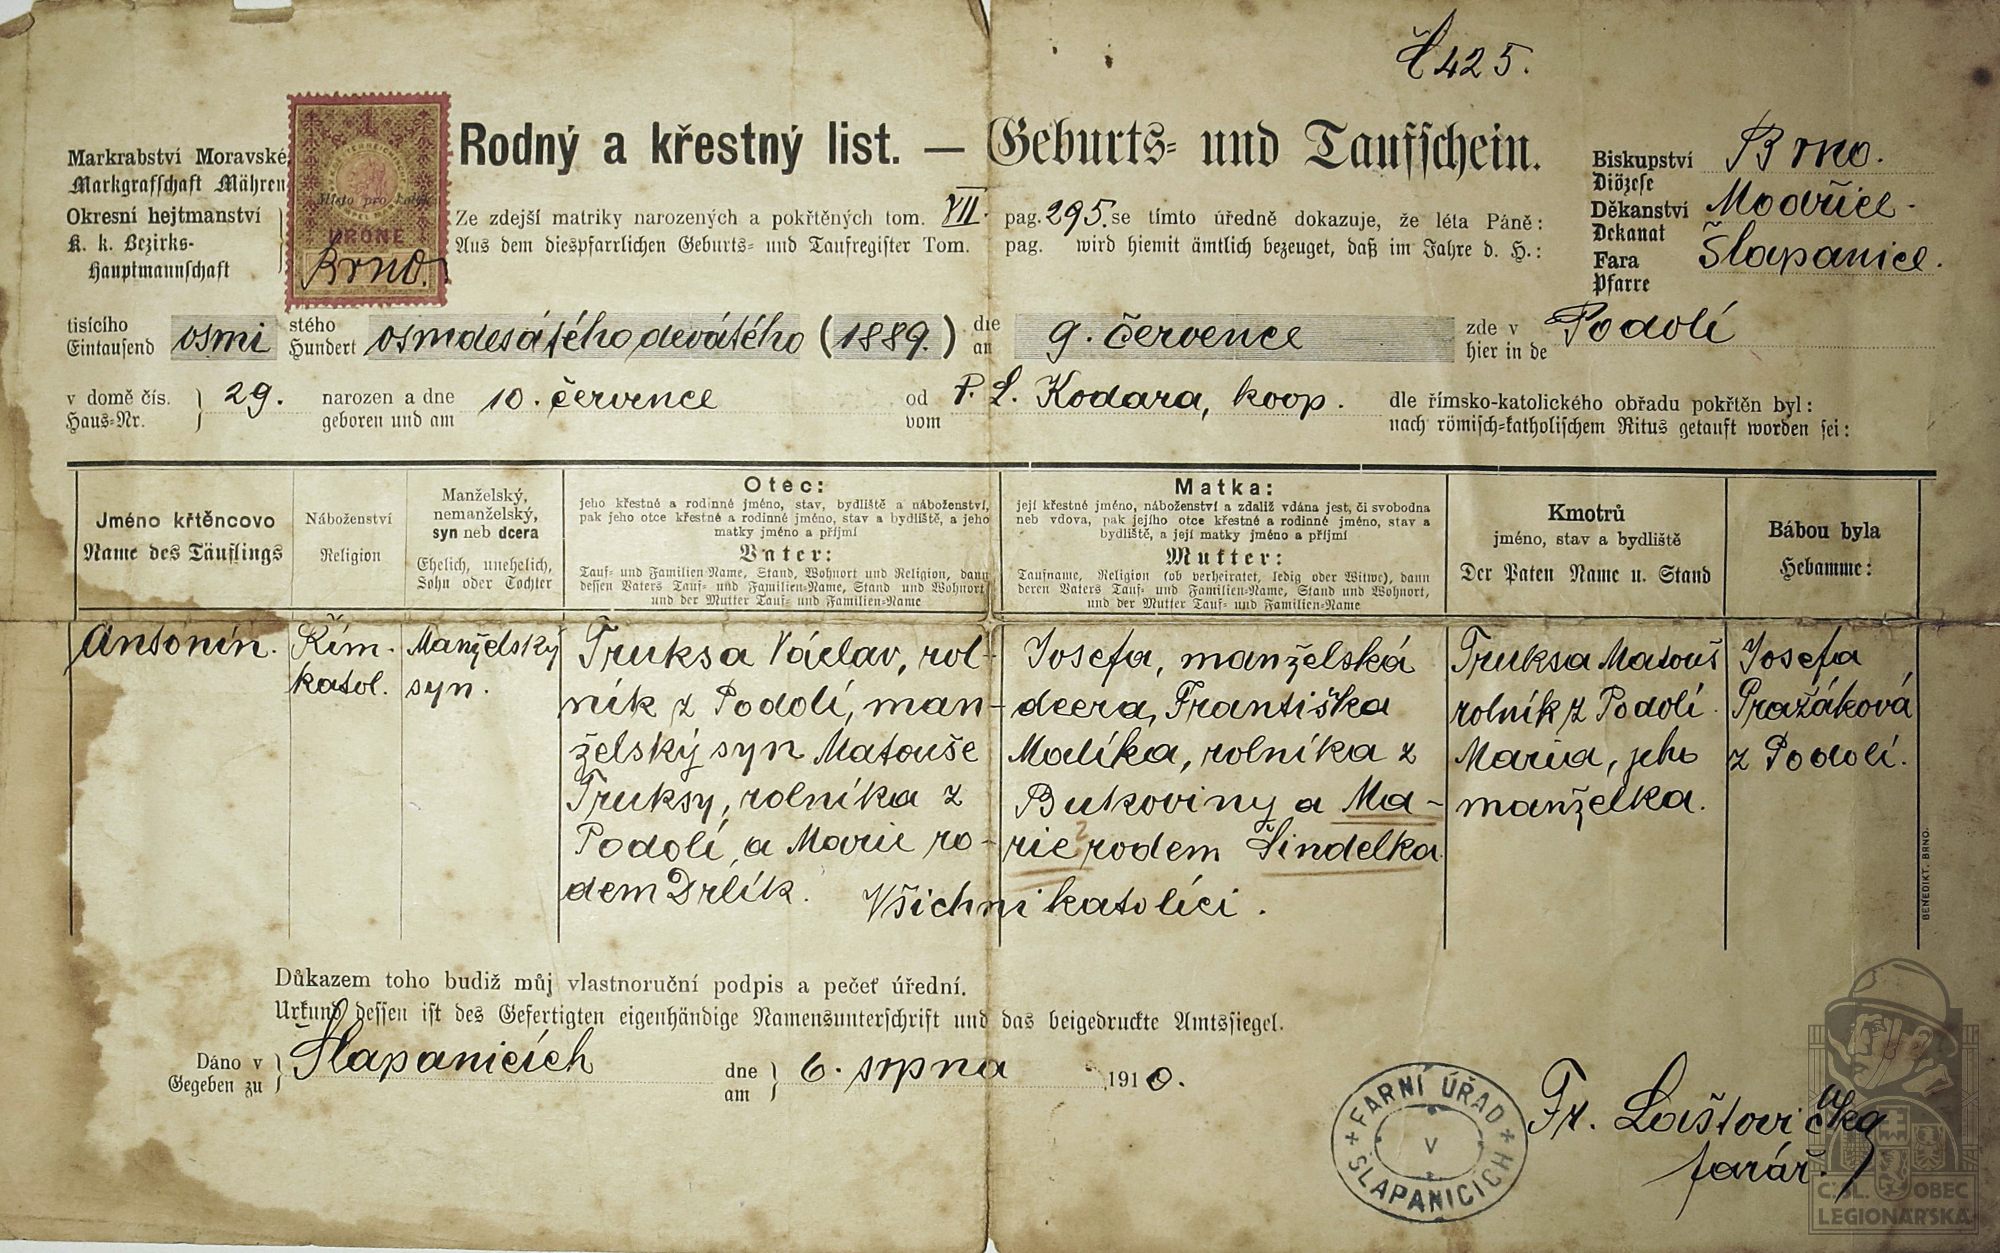 Č 425.
Markrabství Moravské
Markgrafschaft Mähren
Okresní hejtmanství
K. k. Bezirks-
Hauptmannschaft
1
Místo pro kolek
KRONE
Brno.
Rodný a křestný list. — Geburts- und Taufschein.
Ze zdejší matriky narozených a pokřtěných tom. VII. pag. 295. se tímto úředně dokazuje, že léta Páně:
Aus dem diespfarrlichen Geburts- und Taufregister Tom. pag. wird hiemit ämtlich bezeuget, daß im Jahre d. H.:
Biskupství Brno.
Diözese
Děkanství Modřice.
Dekanat
Fara Šlapanice.
Pfarre
tisícího osmi stého osmdesátého devátého (1889.) dne 9. července zde v Podolí
Eintausend Hundert an hier in de
v domě čís. 29. narozen a dne 10. července od P. L. Kodara, koop. dle římsko-katolického obřadu pokřtěn byl:
Haus-Nr. geboren und am vom nach römisch-katholischem Ritus getauft worden sei:
Jméno křtěncovo
Name des Täuflings
Náboženství
Religion
Manželský,
nemanželský,
syn neb dcera
Ehelich, unehelich,
Sohn oder Tochter
Otec:
jeho křestné a rodinné jméno, stav, bydliště a náboženství,
pak jeho otce křestné a rodinné jméno, stav a bydliště, a jeho
matky jméno a příjmí
Vater:
Tauf- und Familien-Name, Stand, Wohnort und Religion, dann
dessen Vaters Tauf- und Familien-Name, Stand und Wohnort
und der Mutter Tauf- und Familien-Name
Matka:
její křestné jméno, náboženství a zdaliž vdána jest, či svobodna
neb vdova, pak jejího otce křestné a rodinné jméno, stav a
bydliště, a její matky jméno a příjmí
Mutter:
Taufname, Religion (ob verheiratet, ledig oder Witwe), dann
deren Vaters Tauf- und Familien-Name, Stand und Wohnort,
und der Mutter Tauf- und Familien-Name
Kmotrů
jméno, stav a bydliště
Der Paten Name u. Stand
Bábou byla
Hebamme:
Antonín.
Řím.
katol.
Manželský
syn.
Truksa Václav, rol-
ník z Podolí, man-
želský syn Matouše
Truksy, rolníka z
Podolí, a Marie ro-
dem Drlík.
Josefa, manželská
dcera, Františka
Malíka, rolníka z
Bukoviny a Ma-
rie, rodem Šindelka
Všichni katolíci.
Truksa Matouš
rolník z Podolí.
Maria, jeho
manželka.
Josefa
Pražáková
z Podolí.
BENEDIKT. BRNO.
Důkazem toho budiž můj vlastnoruční podpis a pečeť úřední.
Urkund dessen ist des Gefertigten eigenhändige Namensunterschrift und das beigedruckte Amtssiegel.
Dáno v Šlapanicích dne 6. srpna 1910.
Gegeben zu am
FARNÍ ÚŘAD
V
ŠLAPANICÍCH
Fr. Laštovička
farář.
Č.SL. OBEC
LEGIONÁŘSKÁ